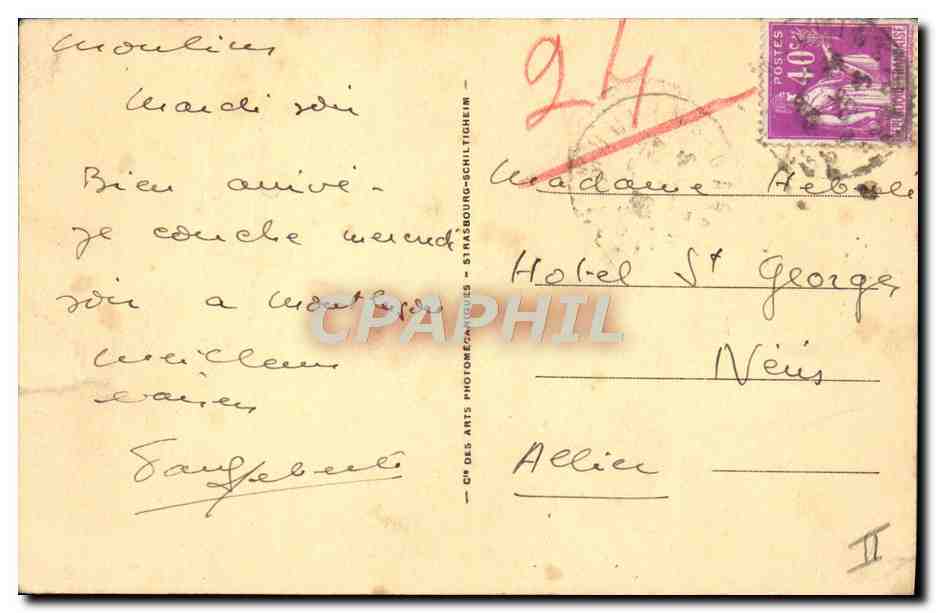 Moulins
Mardi soir
Bien arrivé -
je couche mercredi
soir a Montluçon
Meilleurs
baisers
— Cie DES ARTS PHOTOMÉCANIQUES — STRASBOURG-SCHILTIGHEIM —
24
POSTES
40c
Madame
Hotel St Georges
Néris
Allier
II
CPAPHIL